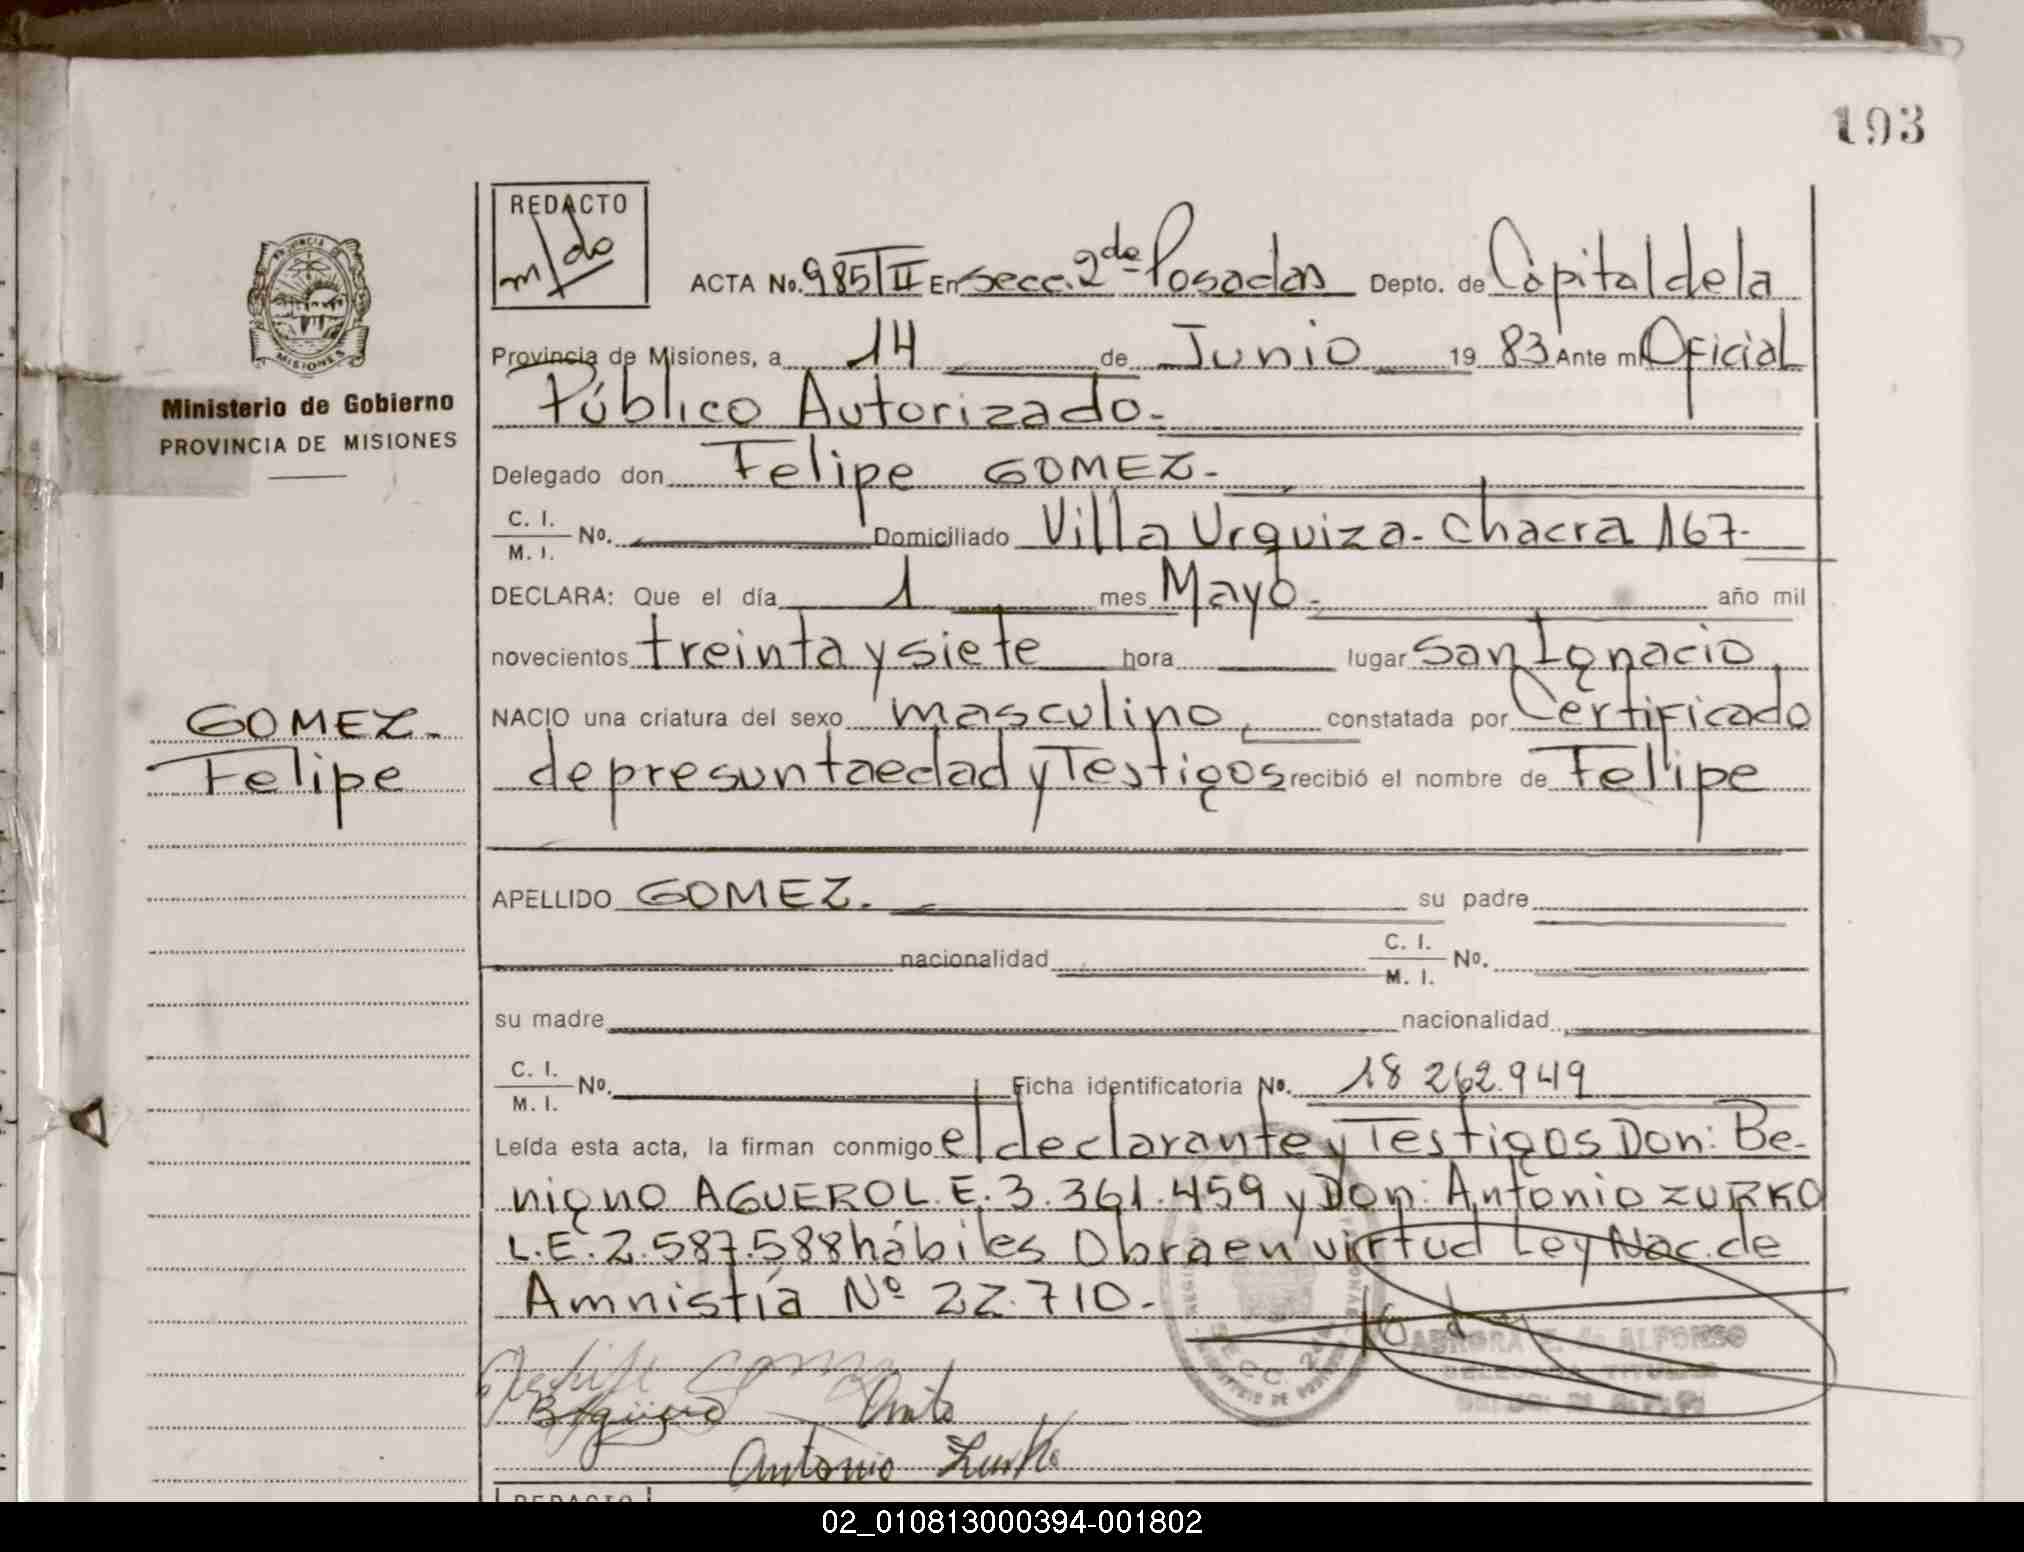 193
REDACTO
ACTA No. 985/II En secc. 2da Posadas Depto. de Capital de la
Provincia de Misiones, a 14 de Junio 1983 Ante mí Oficial
Público Autorizado.-
Ministerio de Gobierno
PROVINCIA DE MISIONES
Delegado don Felipe GOMEZ.-
C. I.
M. I. No. Domiciliado Villa Urquiza - Chacra 167.-
DECLARA: Que el día 1 mes Mayo.- año mil
novecientos treinta y siete hora lugar San Ignacio,
GOMEZ.-
Felipe
NACIO una criatura del sexo masculino, constatada por Certificado
de presunta edad y Testigos recibió el nombre de Felipe
APELLIDO GOMEZ.- su padre
nacionalidad C. I.
M. I. No.
su madre nacionalidad
C. I.
M. I. No. Ficha identificatoria No. 18 262.949
Leída esta acta, la firman conmigo el declarante y Testigos Don: Be-
nigno AGUERO L.E. 3.361.459 y Don: Antonio ZURKO
L.E. 2.587.588 hábiles Obra en virtud Ley Nac. de
Amnistía Nº 22.710.-
AURORA E. de ALFONSO
DELEGADA TITULAR
Antonio Zurko
REDACTO
02_010813000394-001802